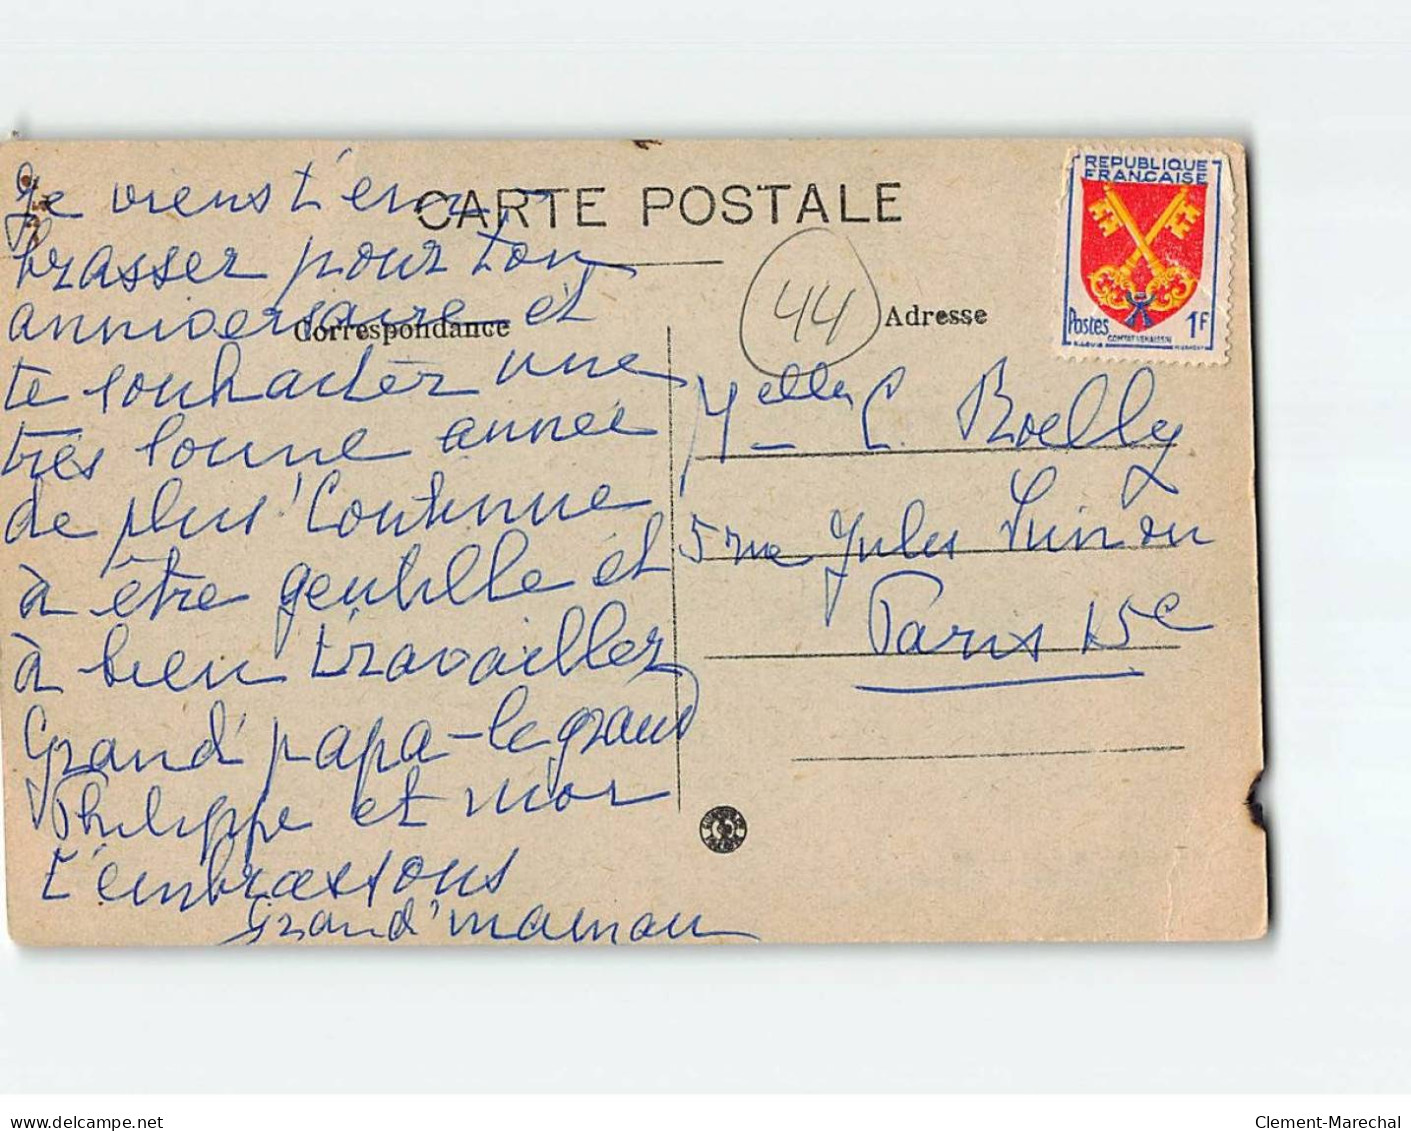 CARTE POSTALE
Correspondance
Je viens t'em-
brasser pour ton
anniversaire et
te souhaiter une
très bonne année
de plus! Continue
à être gentille et
à bien travailler
Grand'papa - le grand
Philippe et moi
t'embrassons
Grand'maman
44
Adresse
REPUBLIQUE
FRANCAISE
Postes 1F
COMTAT VENAISSIN
Melle C. Roelly
5 rue Jules Simon
Paris 15e
Clement-Marechal